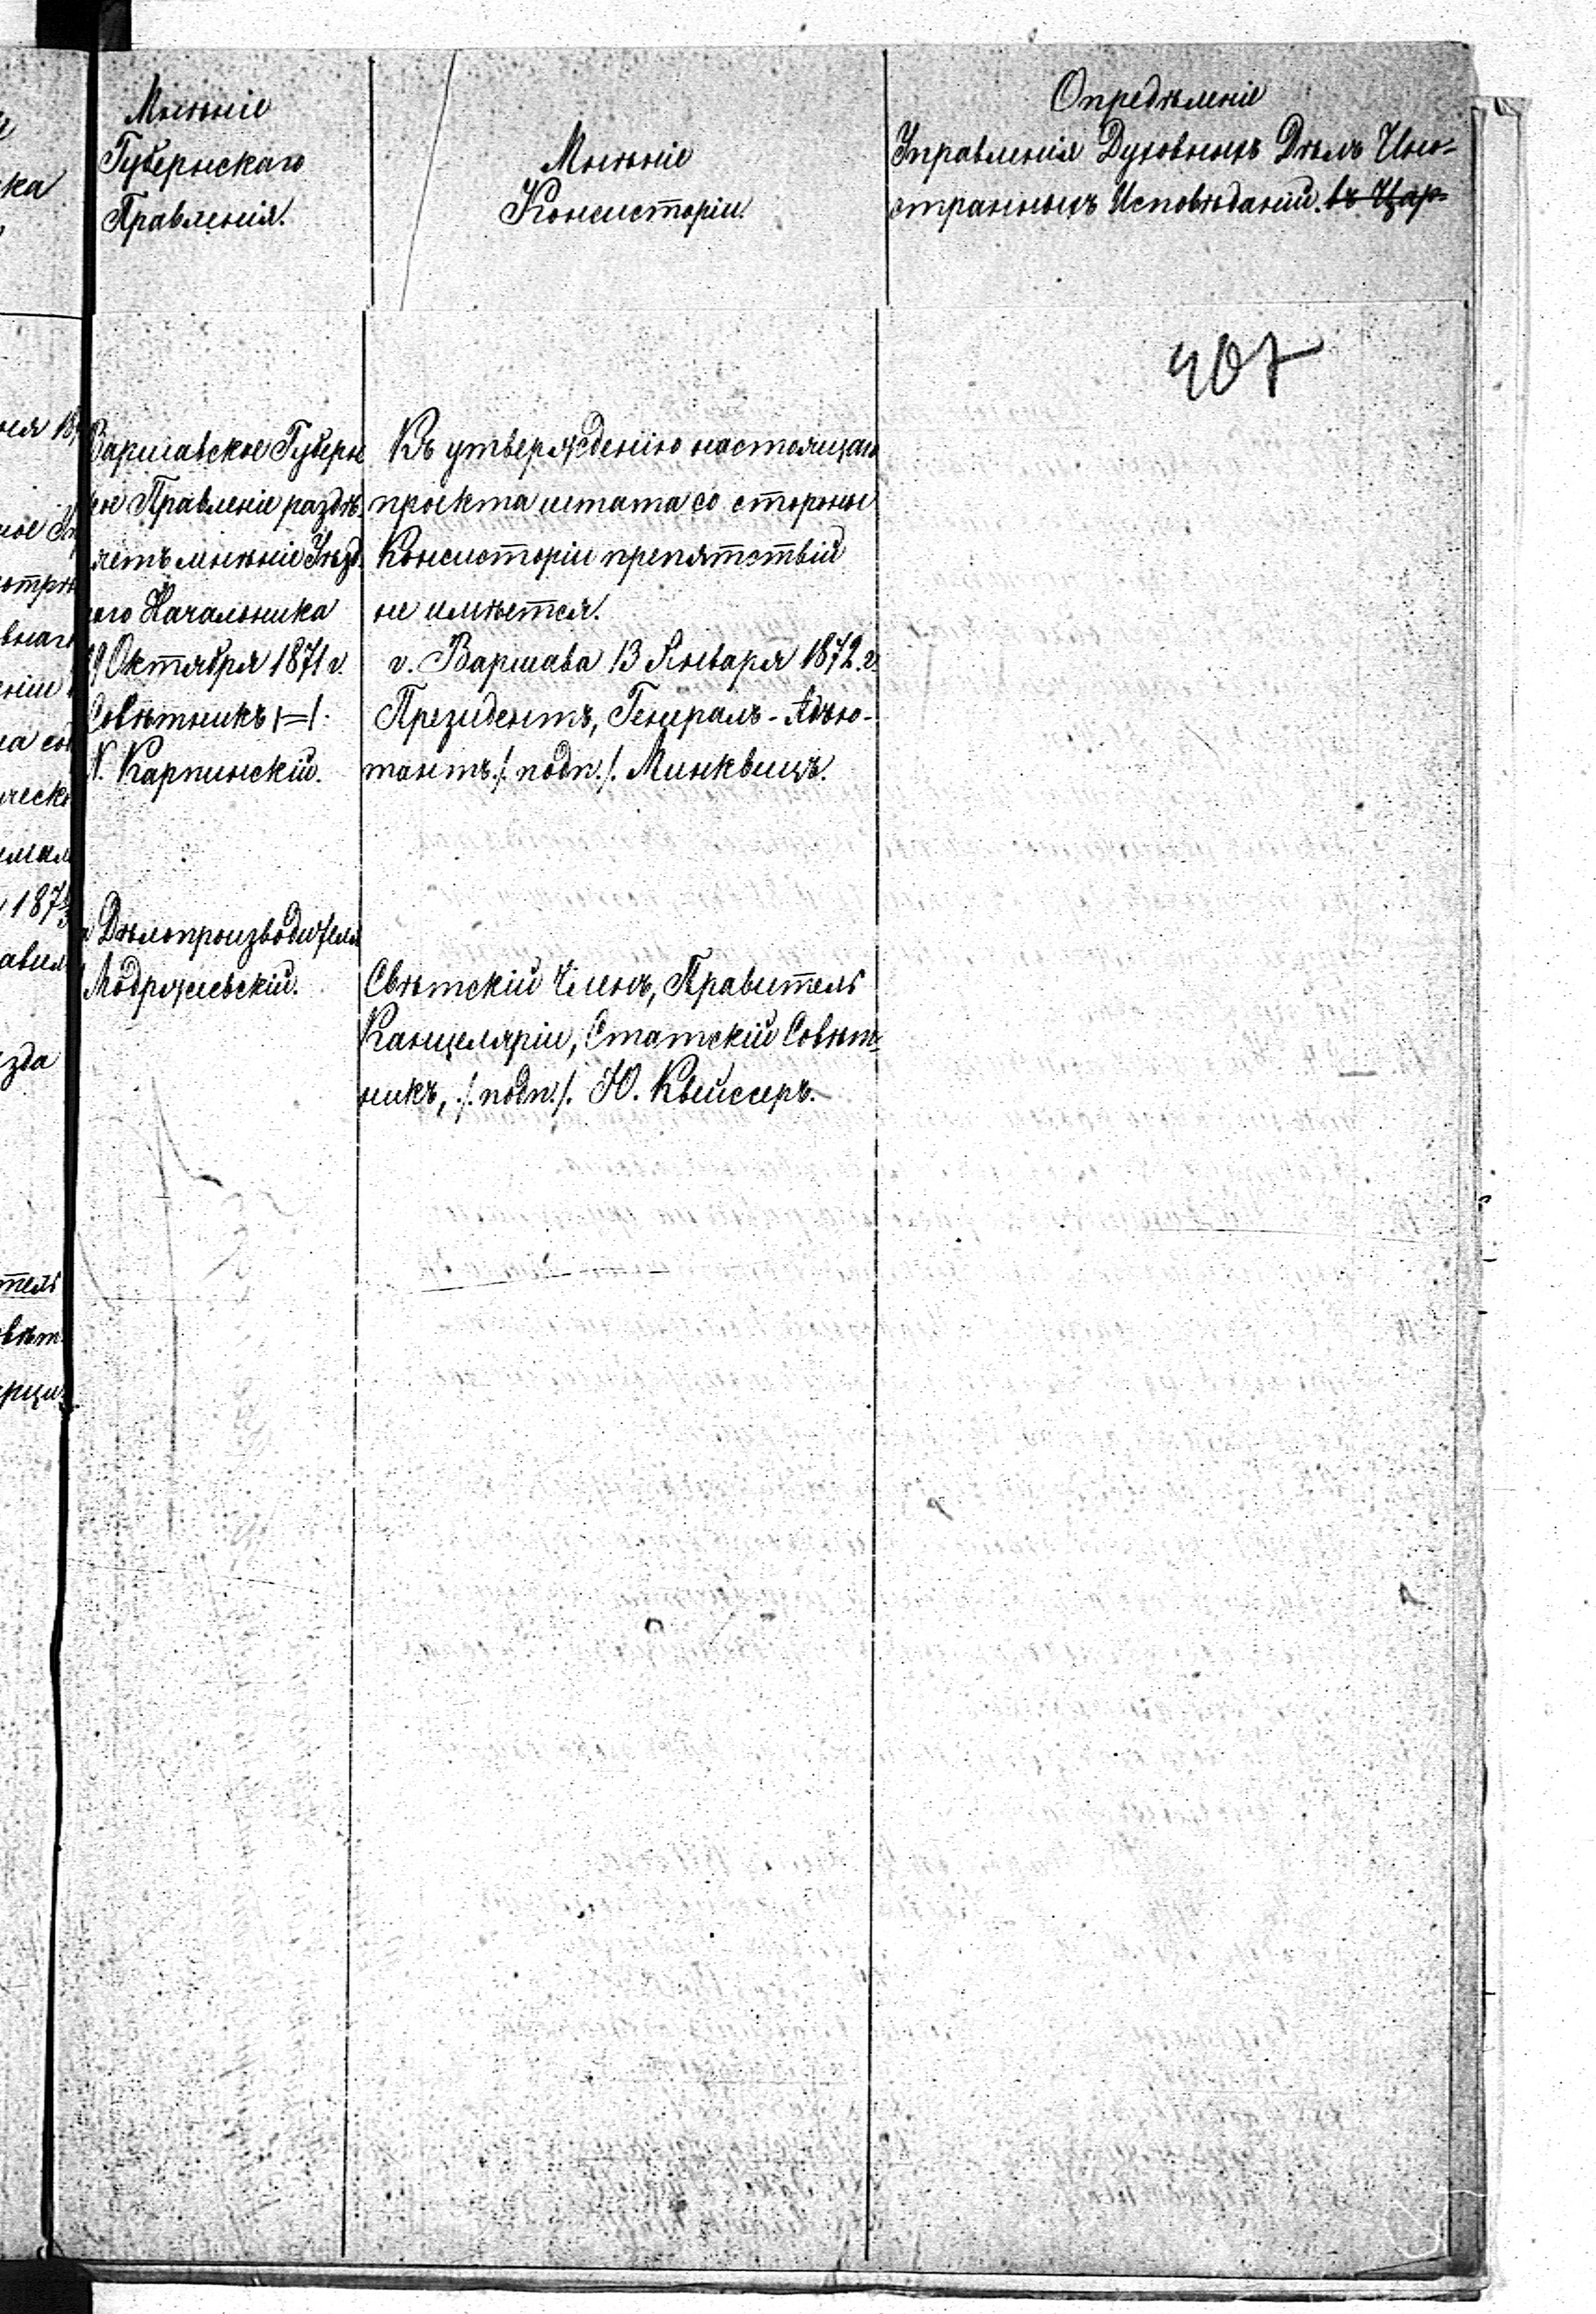 Мнѣніе
Губернскаго
Правленія.
Мнѣніе
Консисторіи.
Опредѣленіе
Управленія Духовныхъ Дѣлъ Ино-
странныхъ Исповѣданій. въ Цар-
407
Варшавское Губерн
ное Правленіе раздѣ-
ляетъ мнѣніе Уѣзд-
наго Начальника
29 Октября 1871 г.
Совѣтникъ
Карпинскій.
Дѣлопроизводителя
Модржеевскій.
Къ утвержденію настоящаго
проекта штата со стороны
Консисторіи препятствій
не имѣется.
г. Варшава 13 Января 1872 г.
Президентъ, Генералъ-Адъю-
тантъ ./. подп./. Минквицъ.
Свѣтскій Членъ, Правитель
Канцеляріи, Статскій Совѣт-
никъ, ./. подп./. Ю. Квейссеръ.